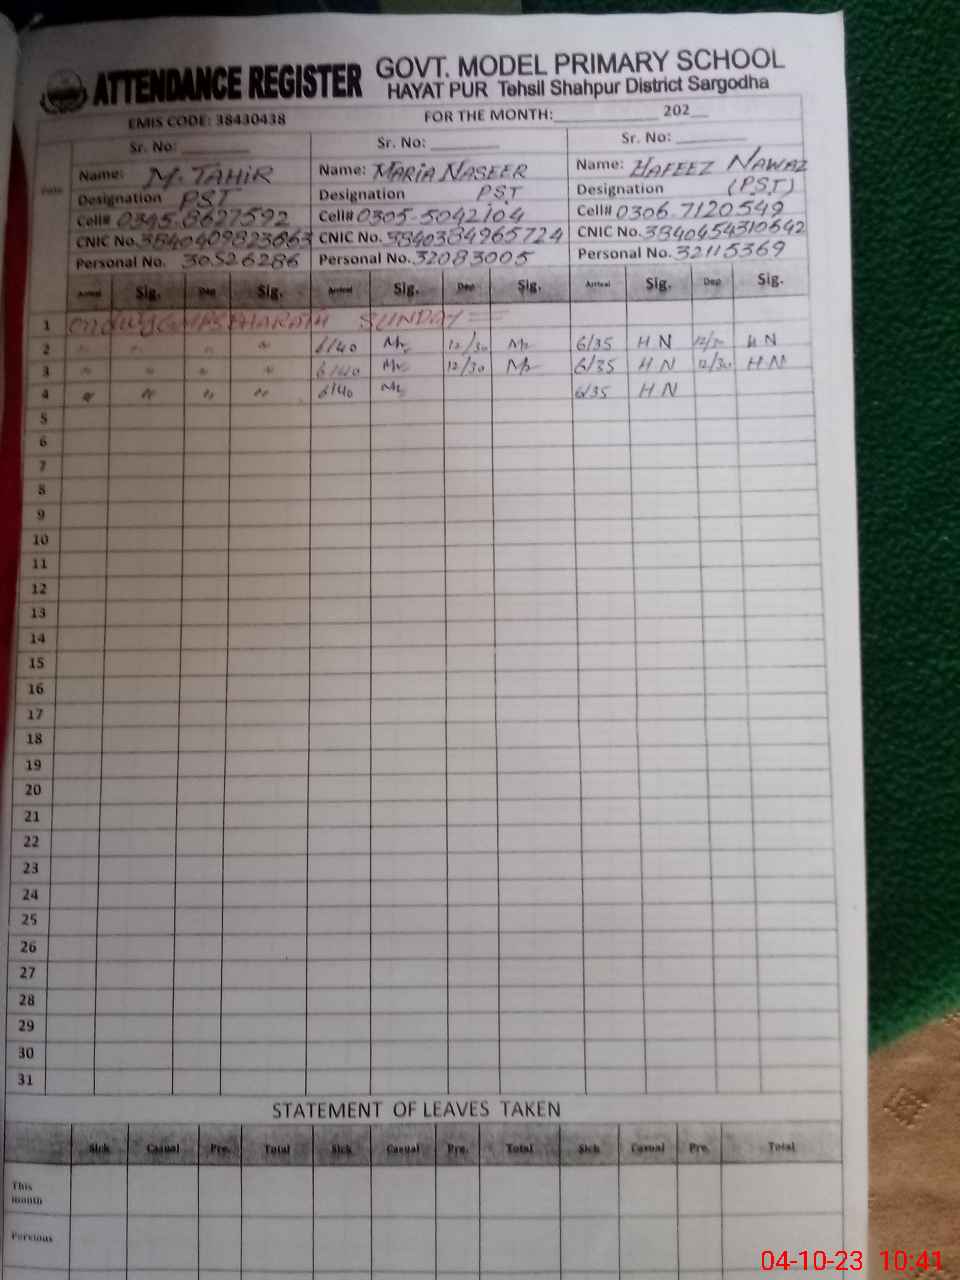 ATTENDANCE REGISTER GOVT. MODEL PRIMARY SCHOOL
HAYAT PUR Tehsil Shahpur District Sargodha
EMIS CODE: 38430438 FOR THE MONTH:____________ 202__
Sr. No: ________ Sr. No: ________ Sr. No: ________
Date
Name: M. TAHIR Name: MARIA NASEER Name: HAFEEZ NAWAZ
Designation PST Designation PST Designation (PST)
Cell# 0345-8627592 Cell# 0305-5042104 Cell# 0306.7120549
CNIC No. 3840409823863 CNIC No. 3840384965724 CNIC No. 3840454310642
Personal No. 30526286 Personal No. 32083005 Personal No. 32115369
Arrival Sig. Dep Sig. Arrival Sig. Dep Sig. Arrival Sig. Dep Sig.
1 SUNDAY
2 " " " " 6/40 12/30 6/35 H N 12/30 H N
3 " " " " 6/40 12/30 6/35 H N 12/30 H N
4 " " " " 6/40 6/35 H N
5
6
7
8
9
10
11
12
13
14
15
16
17
18
19
20
21
22
23
24
25
26
27
28
29
30
31
STATEMENT OF LEAVES TAKEN
Sick Casual Pre. Total Sick Casual Pre. Total Sick Casual Pre. Total
This
month
Previous
04-10-23 10:41